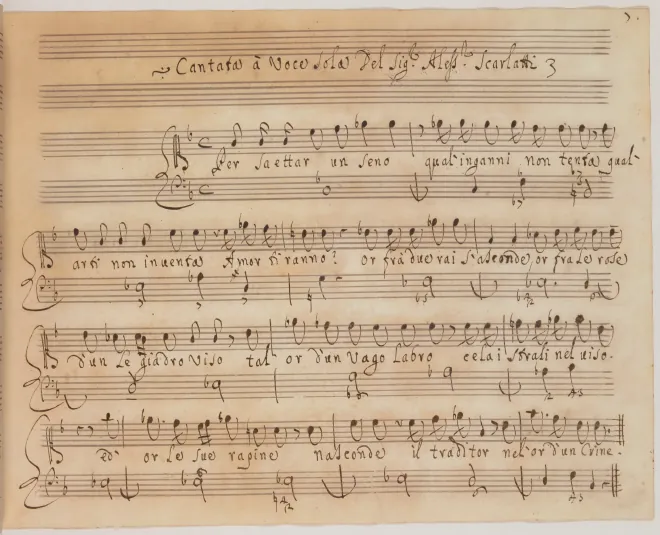 Cantata à Voce sola Del Sig.r Aless.o Scarlatti
Per saettar un seno qual'inganni non tenta qual'
arti non inventa Amor tiranno? or frà due rai s'asconde, or fra le rose
d'un le giadro viso tal or d'un vago labro cela i strali nel riso.
ed' or le sue rapine nasconde il traditor nel'or d'un Crine.